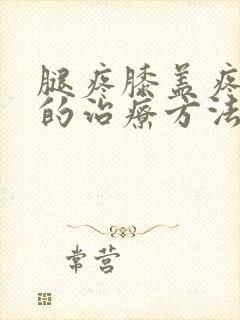 腿疼膝盖疼
的治疗方法
常营